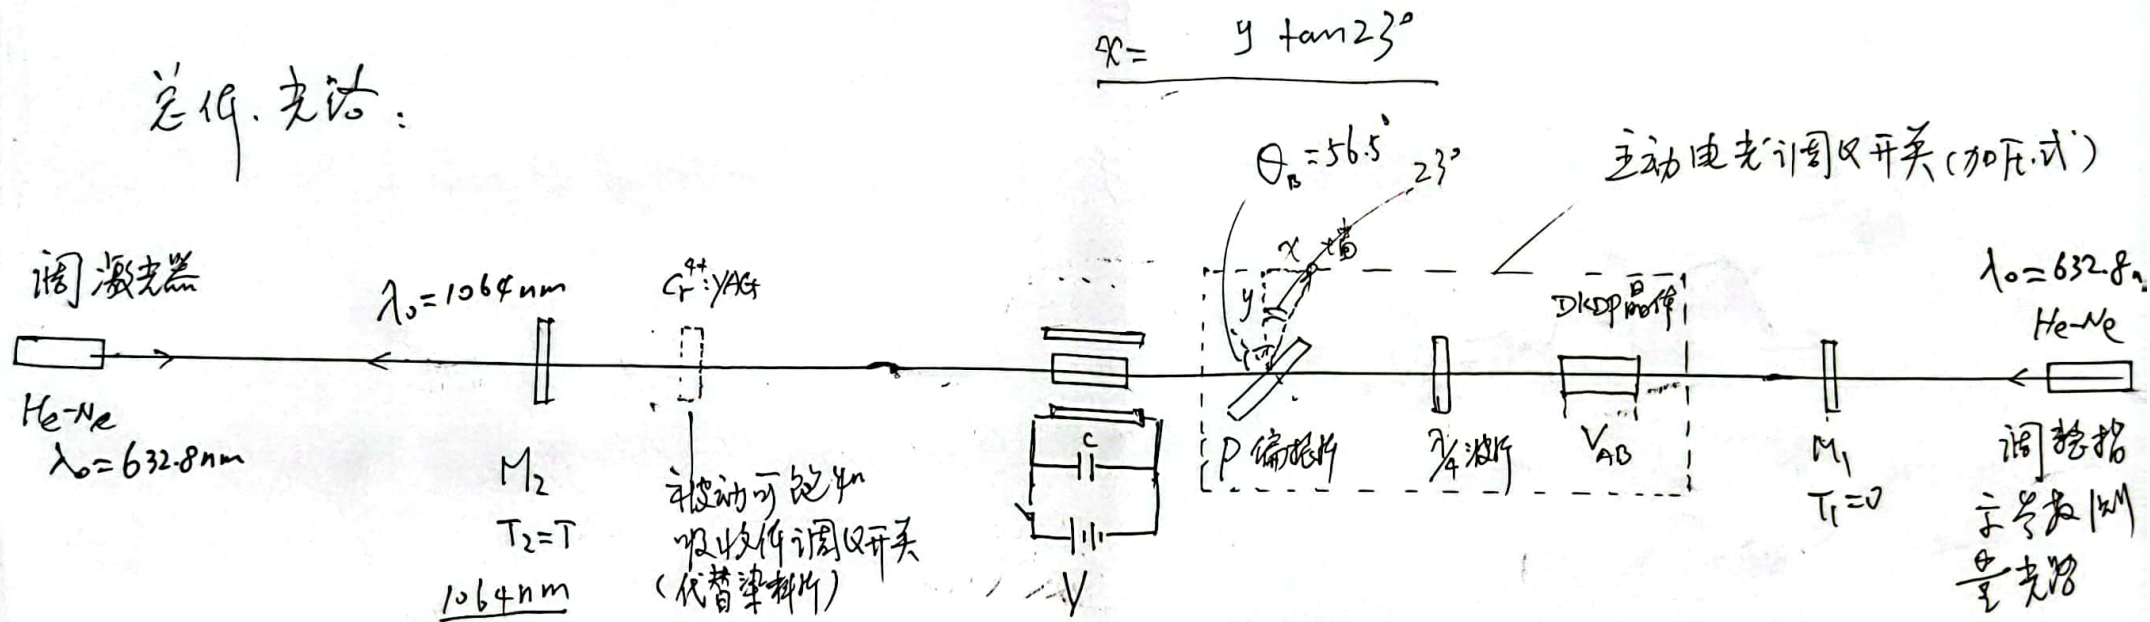 x = y tan23°
总体光路:
θB = 56.5°
23°
主动电光调Q开关(加压式)
x 墙
y
调激光器
λ₀=1064nm
Cr⁴⁺:YAG
DKDP晶体
λ₀=632.8n
He-Ne
He-Ne
λ₀=632.8nm
M₂
T₂=T
1064nm
被动可饱和
吸收体调Q开关
(代替染料片)
C
V
P偏振片
λ/4波片
V_AB
M₁
T₁=0
调整指
示与
光路